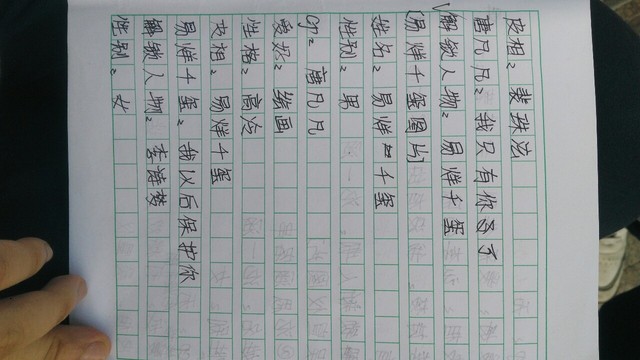 皮相：裴珠泫
唐凡凡：我只有你了
解锁人物：易烊千玺
(易烊千玺图片)
姓名：易烊千玺
性别：男
cp：唐凡凡
爱好：绘画
性格：高冷
皮相：易烊千玺
易烊千玺：我以后保护你
解锁人物：李诗梦
性别：女